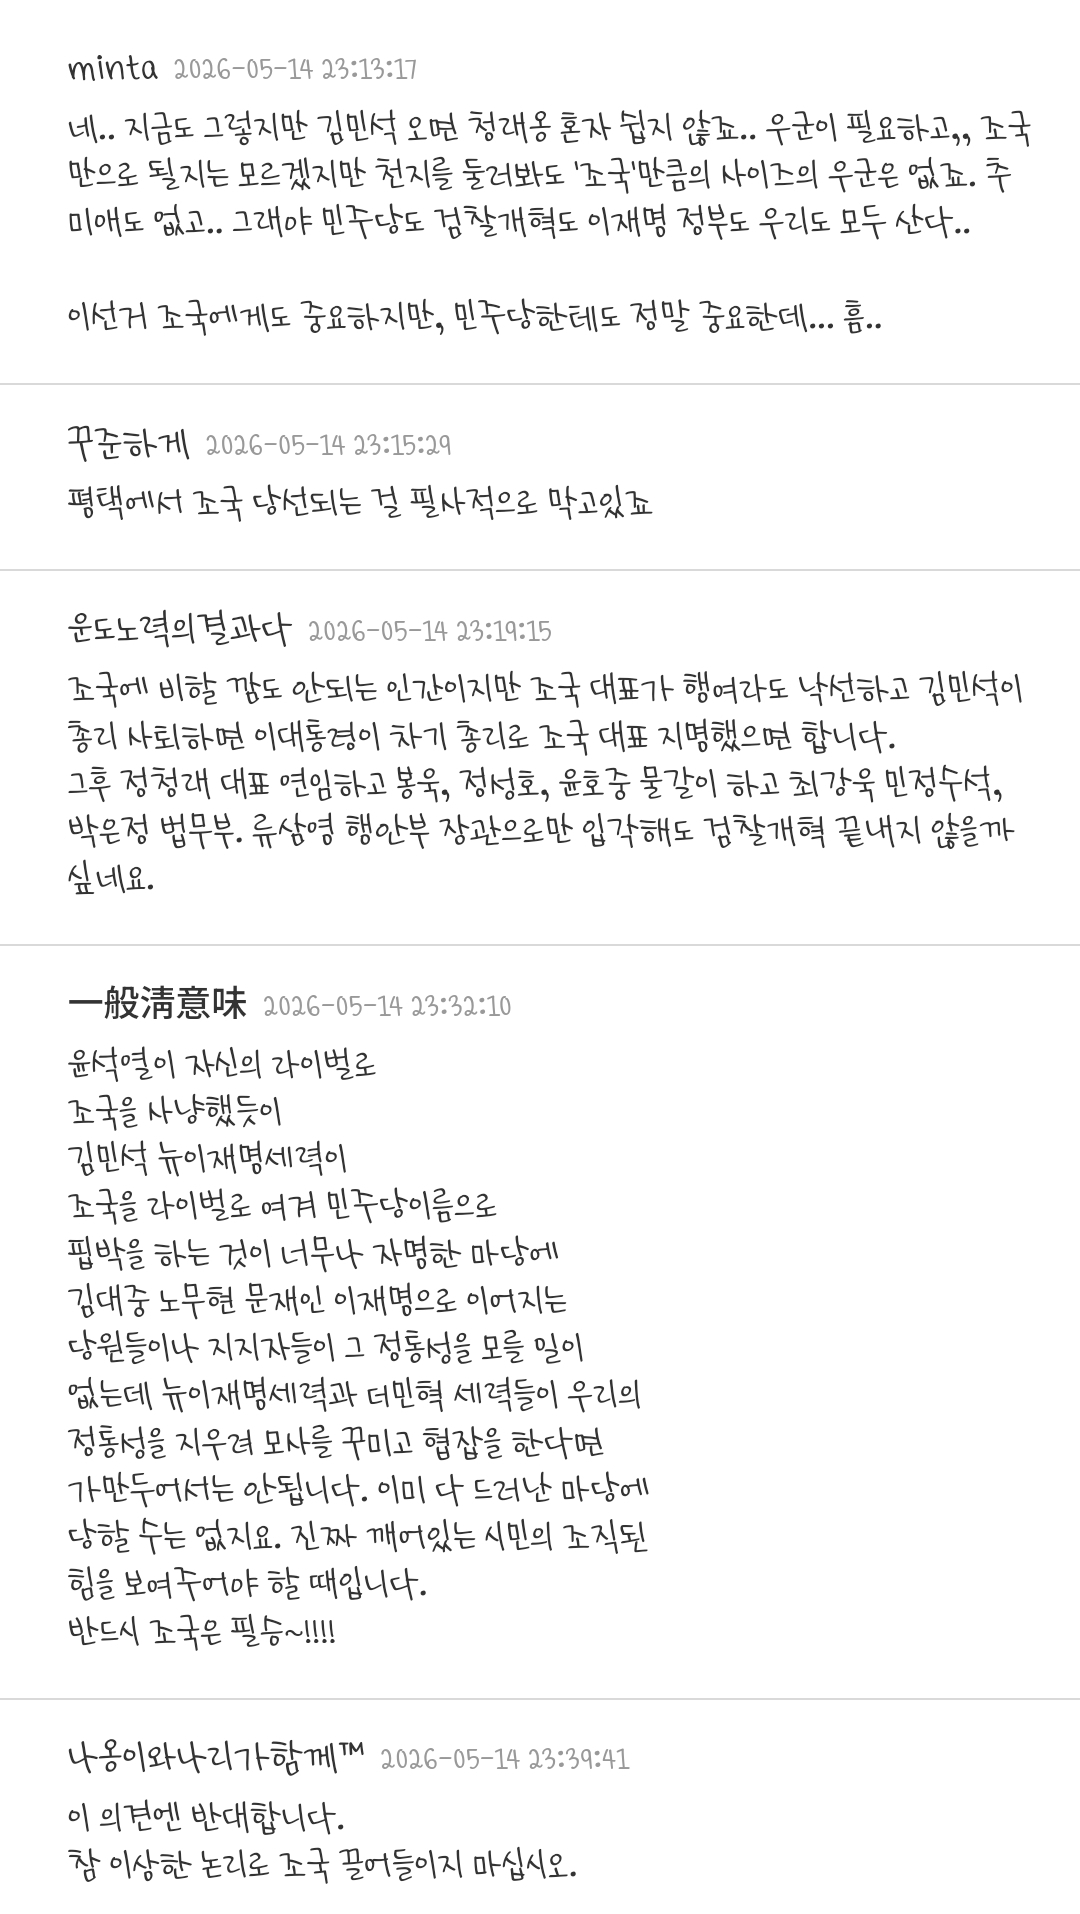 minta 2026-05-14 23:13:17
네.. 지금도 그렇지만 김민석 오면 청래옹 혼자 쉽지 않죠.. 우군이 필요하고,, 조국
만으로 될지는 모르겠지만 천지를 둘러봐도 '조국'만큼의 사이즈의 우군은 없죠. 추
미애도 없고.. 그래야 민주당도 검찰개혁도 이재명 정부도 우리도 모두 산다..
이선거 조국에게도 중요하지만, 민주당한테도 정말 중요한데... 흠..
꾸준하게 2026-05-14 23:15:29
평택에서 조국 당선되는 걸 필사적으로 막고있죠
운도노력의결과다 2026-05-14 23:19:15
조국에 비할 깜도 안되는 인간이지만 조국 대표가 행여라도 낙선하고 김민석이
총리 사퇴하면 이대통령이 차기 총리로 조국 대표 지명했으면 합니다.
그후 정청래 대표 연임하고 봉욱, 정성호, 윤호중 물갈이 하고 최강욱 민정수석,
박은정 법무부. 류삼영 행안부 장관으로만 입각해도 검찰개혁 끝내지 않을까
싶네요.
一般淸意味 2026-05-14 23:32:10
윤석열이 자신의 라이벌로
조국을 사냥했듯이
김민석 뉴이재명세력이
조국을 라이벌로 여겨 민주당이름으로
핍박을 하는 것이 너무나 자명한 마당에
김대중 노무현 문재인 이재명으로 이어지는
당원들이나 지지자들이 그 정통성을 모를 일이
없는데 뉴이재명세력과 더민혁 세력들이 우리의
정통성을 지우려 모사를 꾸미고 협잡을 한다면
가만두어서는 안됩니다. 이미 다 드러난 마당에
당할 수는 없지요. 진짜 깨어있는 시민의 조직된
힘을 보여주어야 할 때입니다.
반드시 조국은 필승~!!!!
나옹이와나리가함께™ 2026-05-14 23:39:41
이 의견엔 반대합니다.
참 이상한 논리로 조국 끌어들이지 마십시오.